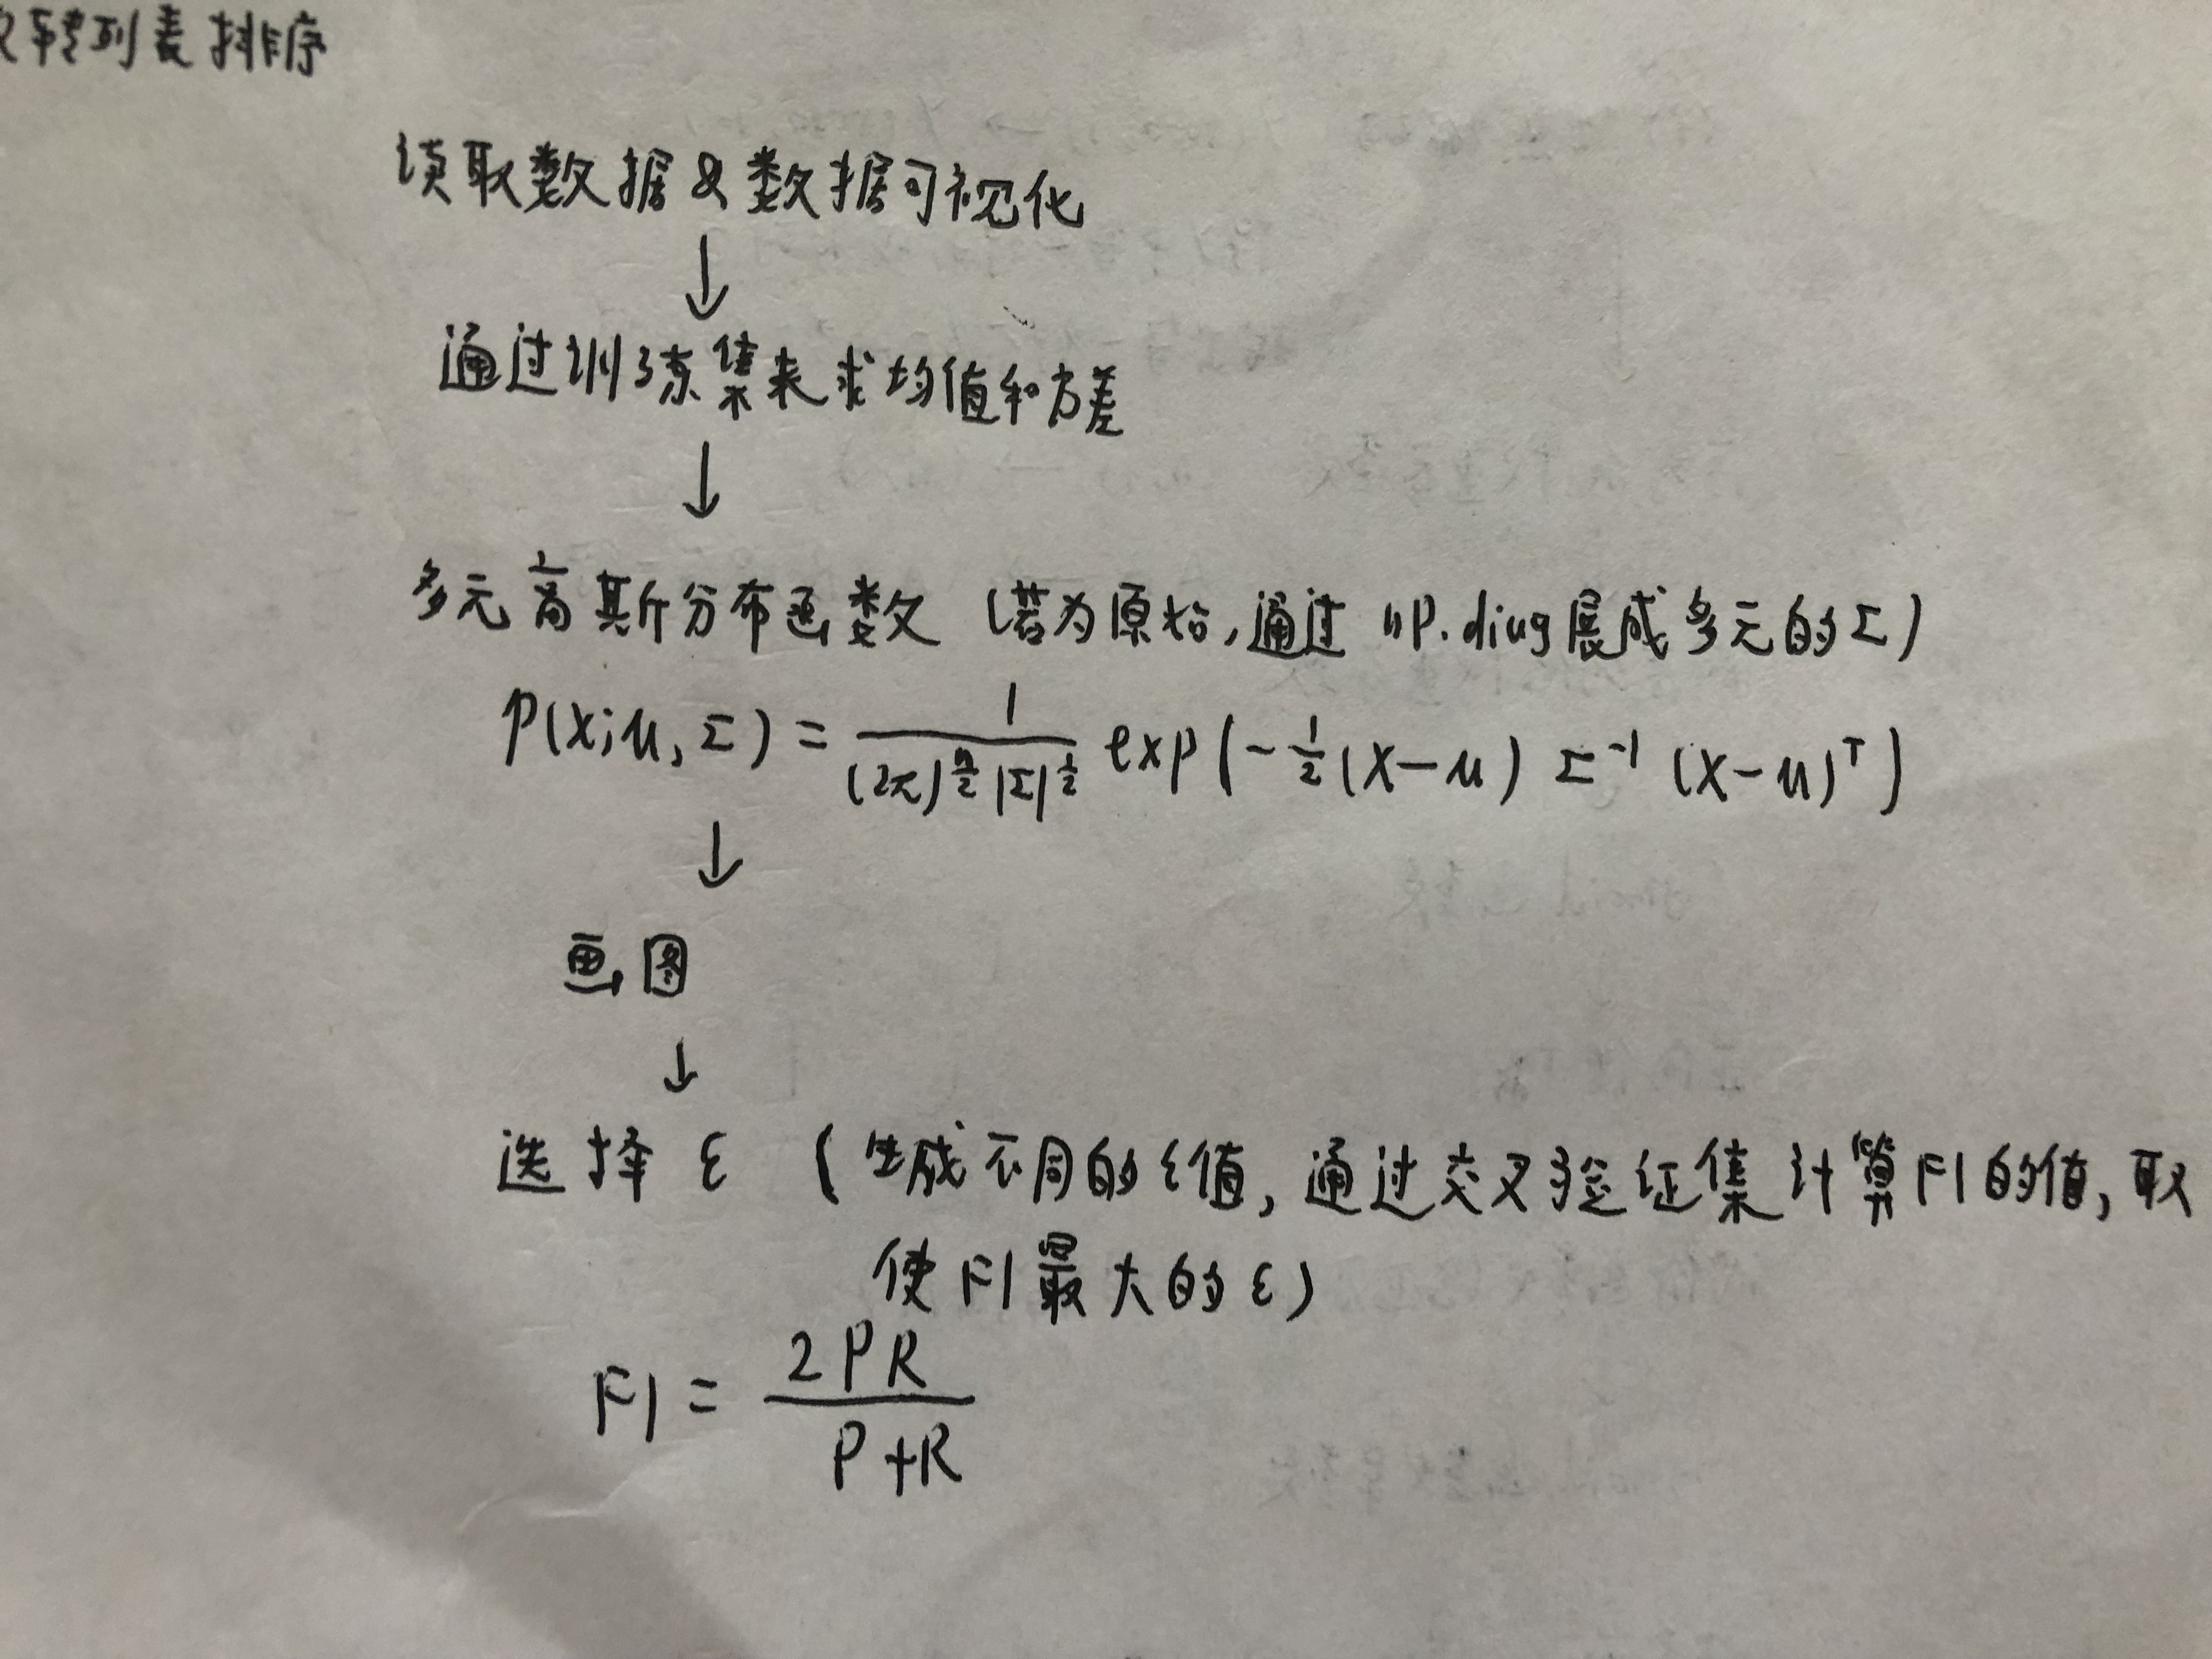 转列表排序
读取数据&数据可视化
↓
通过训练集来求均值和方差
↓
多元高斯分布函数 (若为原始,通过 np.diag展成多元的Σ)
p(x;u,Σ) = \frac{1}{(2π)^{\frac{n}{2}}|Σ|^{\frac{1}{2}}} exp(-\frac{1}{2}(x-u) Σ^{-1} (x-u)^T)
↓
画图
↓
选择 ε (生成不同的ε值,通过交叉验证集计算F1的值,取
使F1最大的ε)
F1 = \frac{2PR}{P+R}